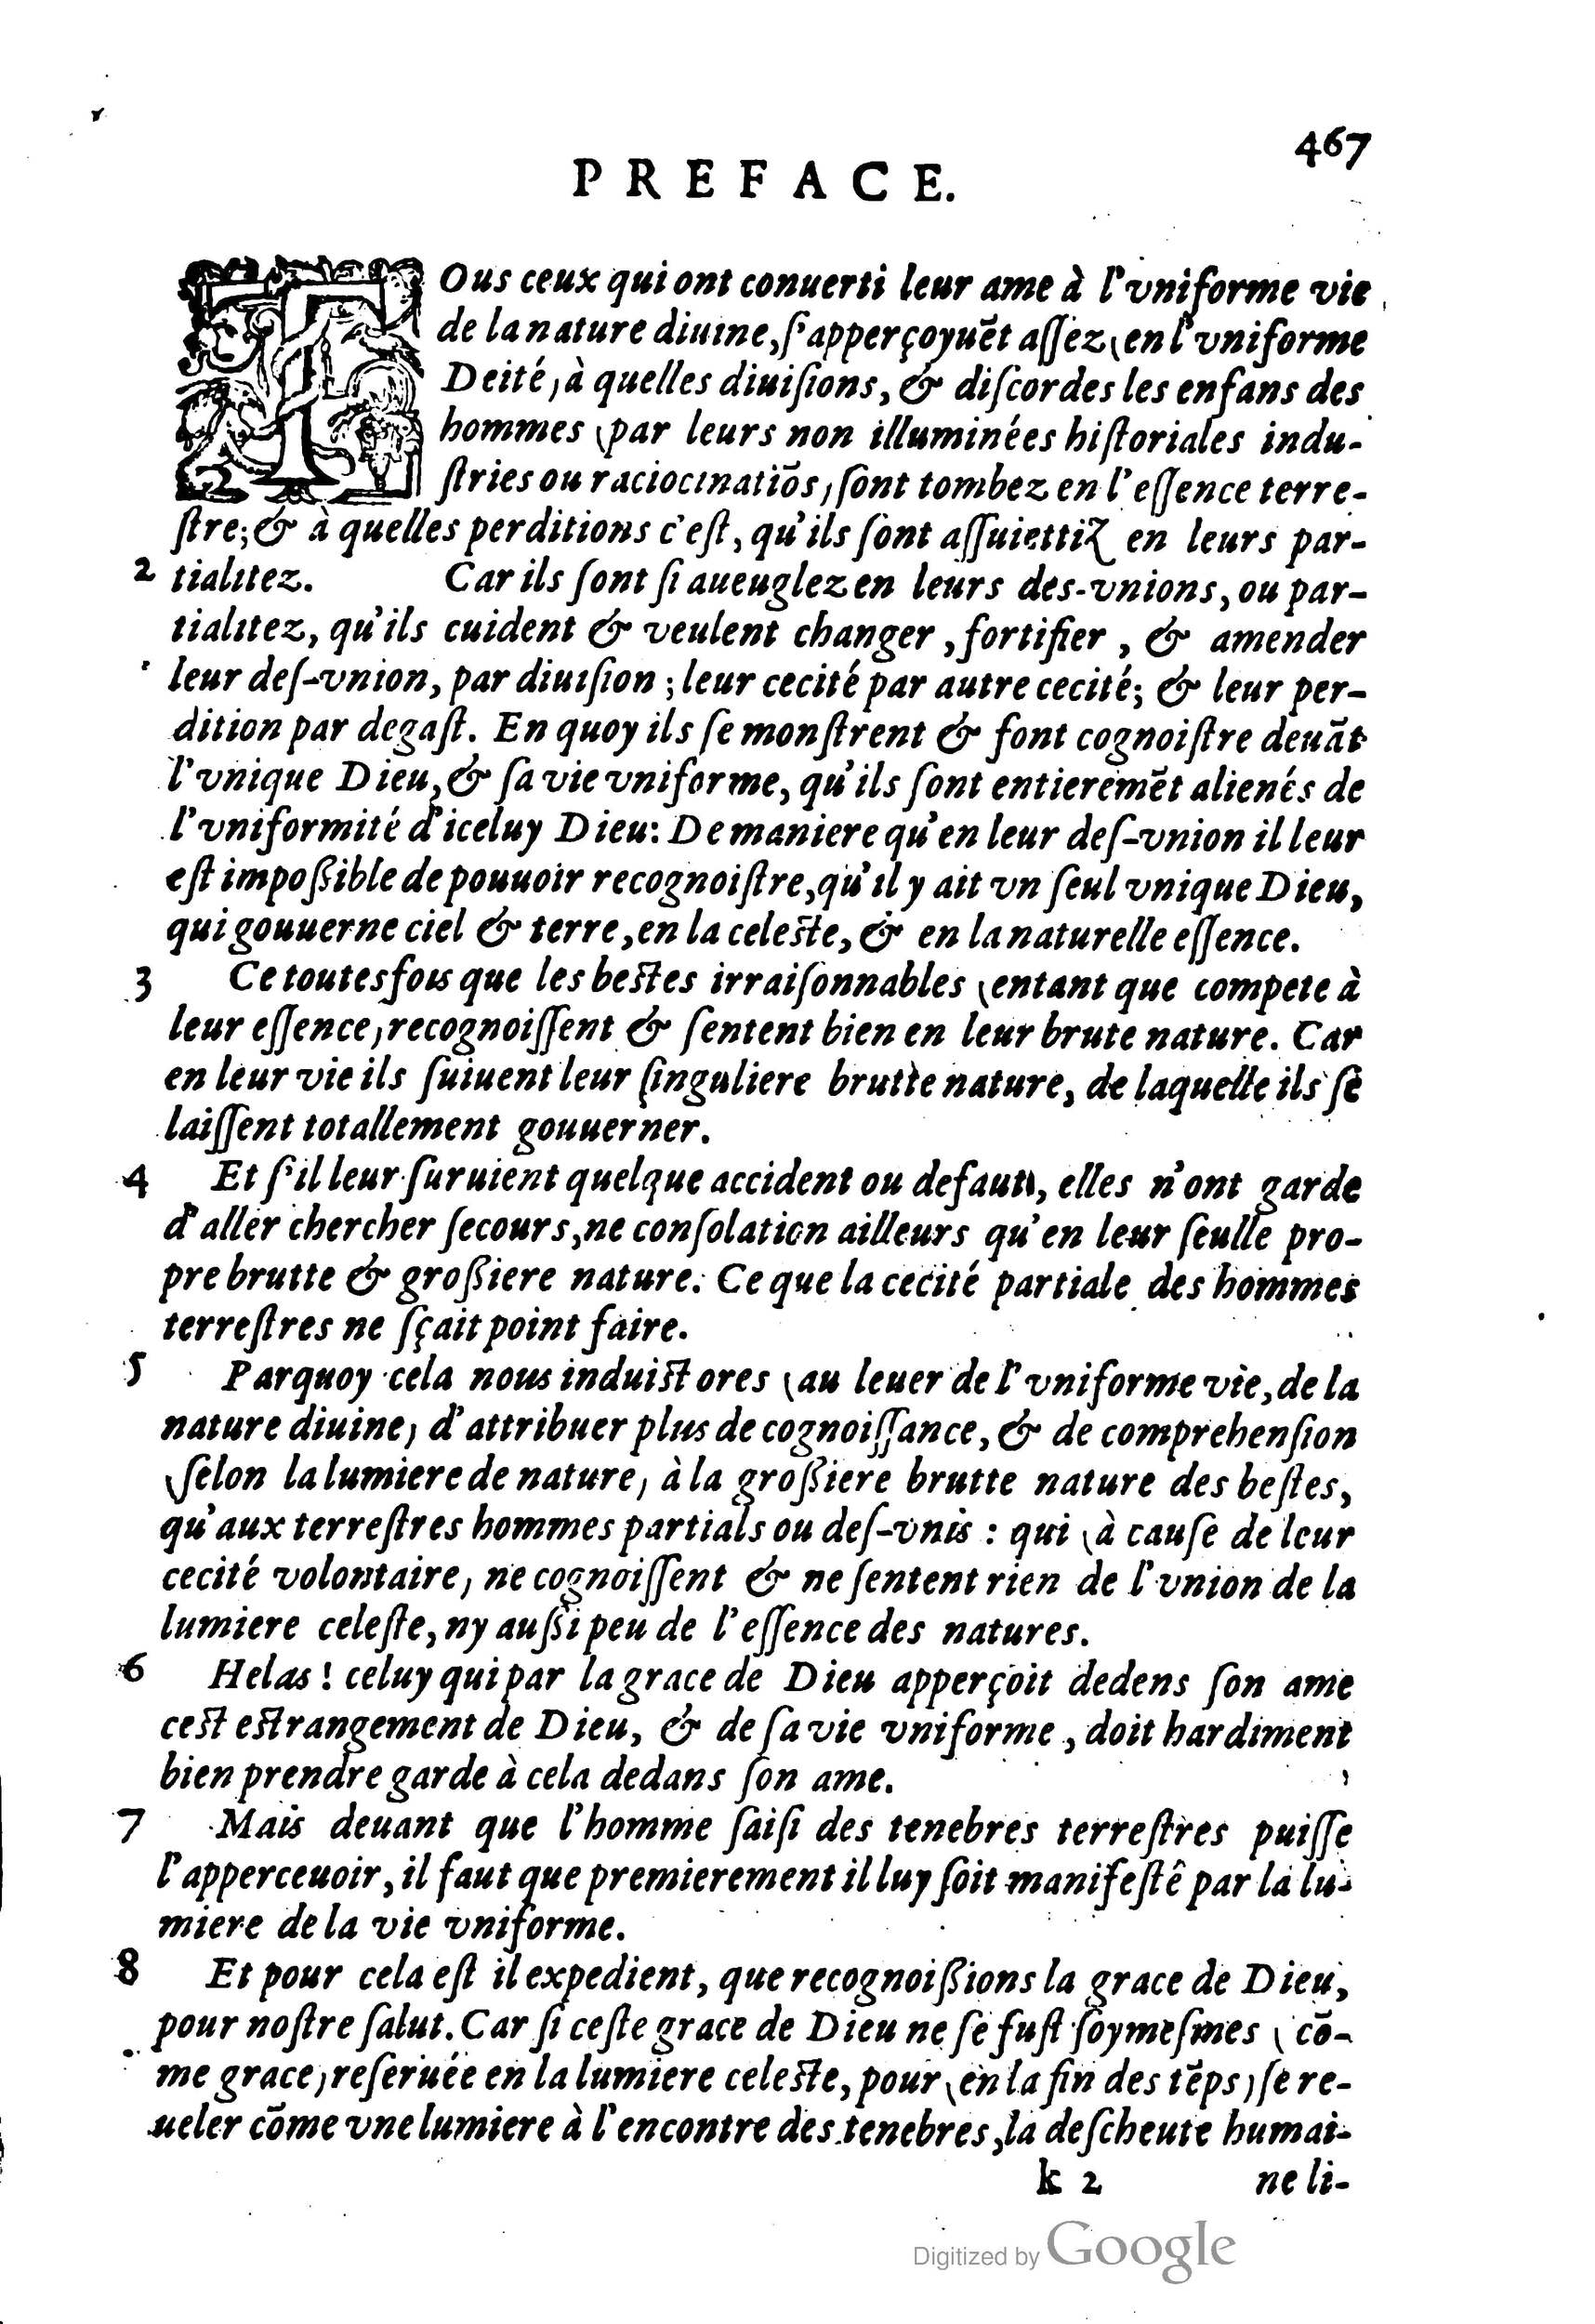 467
PREFACE.
TOus ceux qui ont conuerti leur ame à l'vniforme vie
de la nature diuine, ſ'apperçoyuēt aſſez (en l'vniforme
Deité) à quelles diuiſions, & diſcordes les enfans des
hommes (par leurs non illuminées hiſtoriales indu-
ſtries ou raciocinatiōs) ſont tombez en l'eſſence terre-
ſtre; & à quelles perditions c'eſt, qu'ils ſont aſſuiettiz en leurs par-
2 tialitez. Car ils ſont ſi aueuglez en leurs des-vnions, ou par-
tialitez, qu'ils cuident & veulent changer, fortifier, & amender
leur deſ-vnion, par diuiſion; leur cecité par autre cecité; & leur per-
dition par degaſt. En quoy ils ſe monſtrent & font cognoiſtre deuāt
l'vnique Dieu, & ſa vie vniforme, qu'ils ſont entieremēt alienés de
l'vniformité d'iceluy Dieu: De maniere qu'en leur deſ-vnion il leur
eſt impoßible de pouuoir recognoiſtre, qu'il y ait vn ſeul vnique Dieu,
qui gouuerne ciel & terre, en la celeſte, & en la naturelle eſſence.
3 Ce toutesfois que les beſtes irraiſonnables (entant que compete à
leur eſſence) recognoiſſent & ſentent bien en leur brute nature. Car
en leur vie ils ſuiuent leur ſinguliere brutte nature, de laquelle ils ſe
laiſſent totallement gouuerner.
4 Et ſ'il leur ſuruient quelque accident ou defaut, elles n'ont garde
d'aller chercher ſecours, ne conſolation ailleurs qu'en leur ſeulle pro-
pre brutte & großiere nature. Ce que la cecité partiale des hommes
terreſtres ne ſçait point faire.
5 Parquoy cela nous induiſt ores (au leuer de l'vniforme vie, de la
nature diuine) d'attribuer plus de cognoiſſance, & de comprehenſion
(ſelon la lumiere de nature) à la großiere brutte nature des beſtes,
qu'aux terreſtres hommes partials ou deſ-vnis: qui (à cauſe de leur
cecité volontaire) ne cognoiſſent & ne ſentent rien de l'vnion de la
lumiere celeſte, ny außi peu de l'eſſence des natures.
6 Helas! celuy qui par la grace de Dieu apperçoit dedens ſon ame
ceſt eſtrangement de Dieu, & de ſa vie vniforme, doit hardiment
bien prendre garde à cela dedans ſon ame.
7 Mais deuant que l'homme ſaiſi des tenebres terreſtres puiſſe
l'apperceuoir, il faut que premierement il luy ſoit manifeſté par la lu-
miere de la vie vniforme.
8 Et pour cela eſt il expedient, que recognoißions la grace de Dieu,
pour noſtre ſalut. Car ſi ceſte grace de Dieu ne ſe fuſt ſoymeſmes (cō-
me grace) reſeruée en la lumiere celeſte, pour (en la fin des tēps) ſe re-
ueler cōme vne lumiere à l'encontre des tenebres, la deſcheute humai-
k 2 ne li-
Digitized by Google